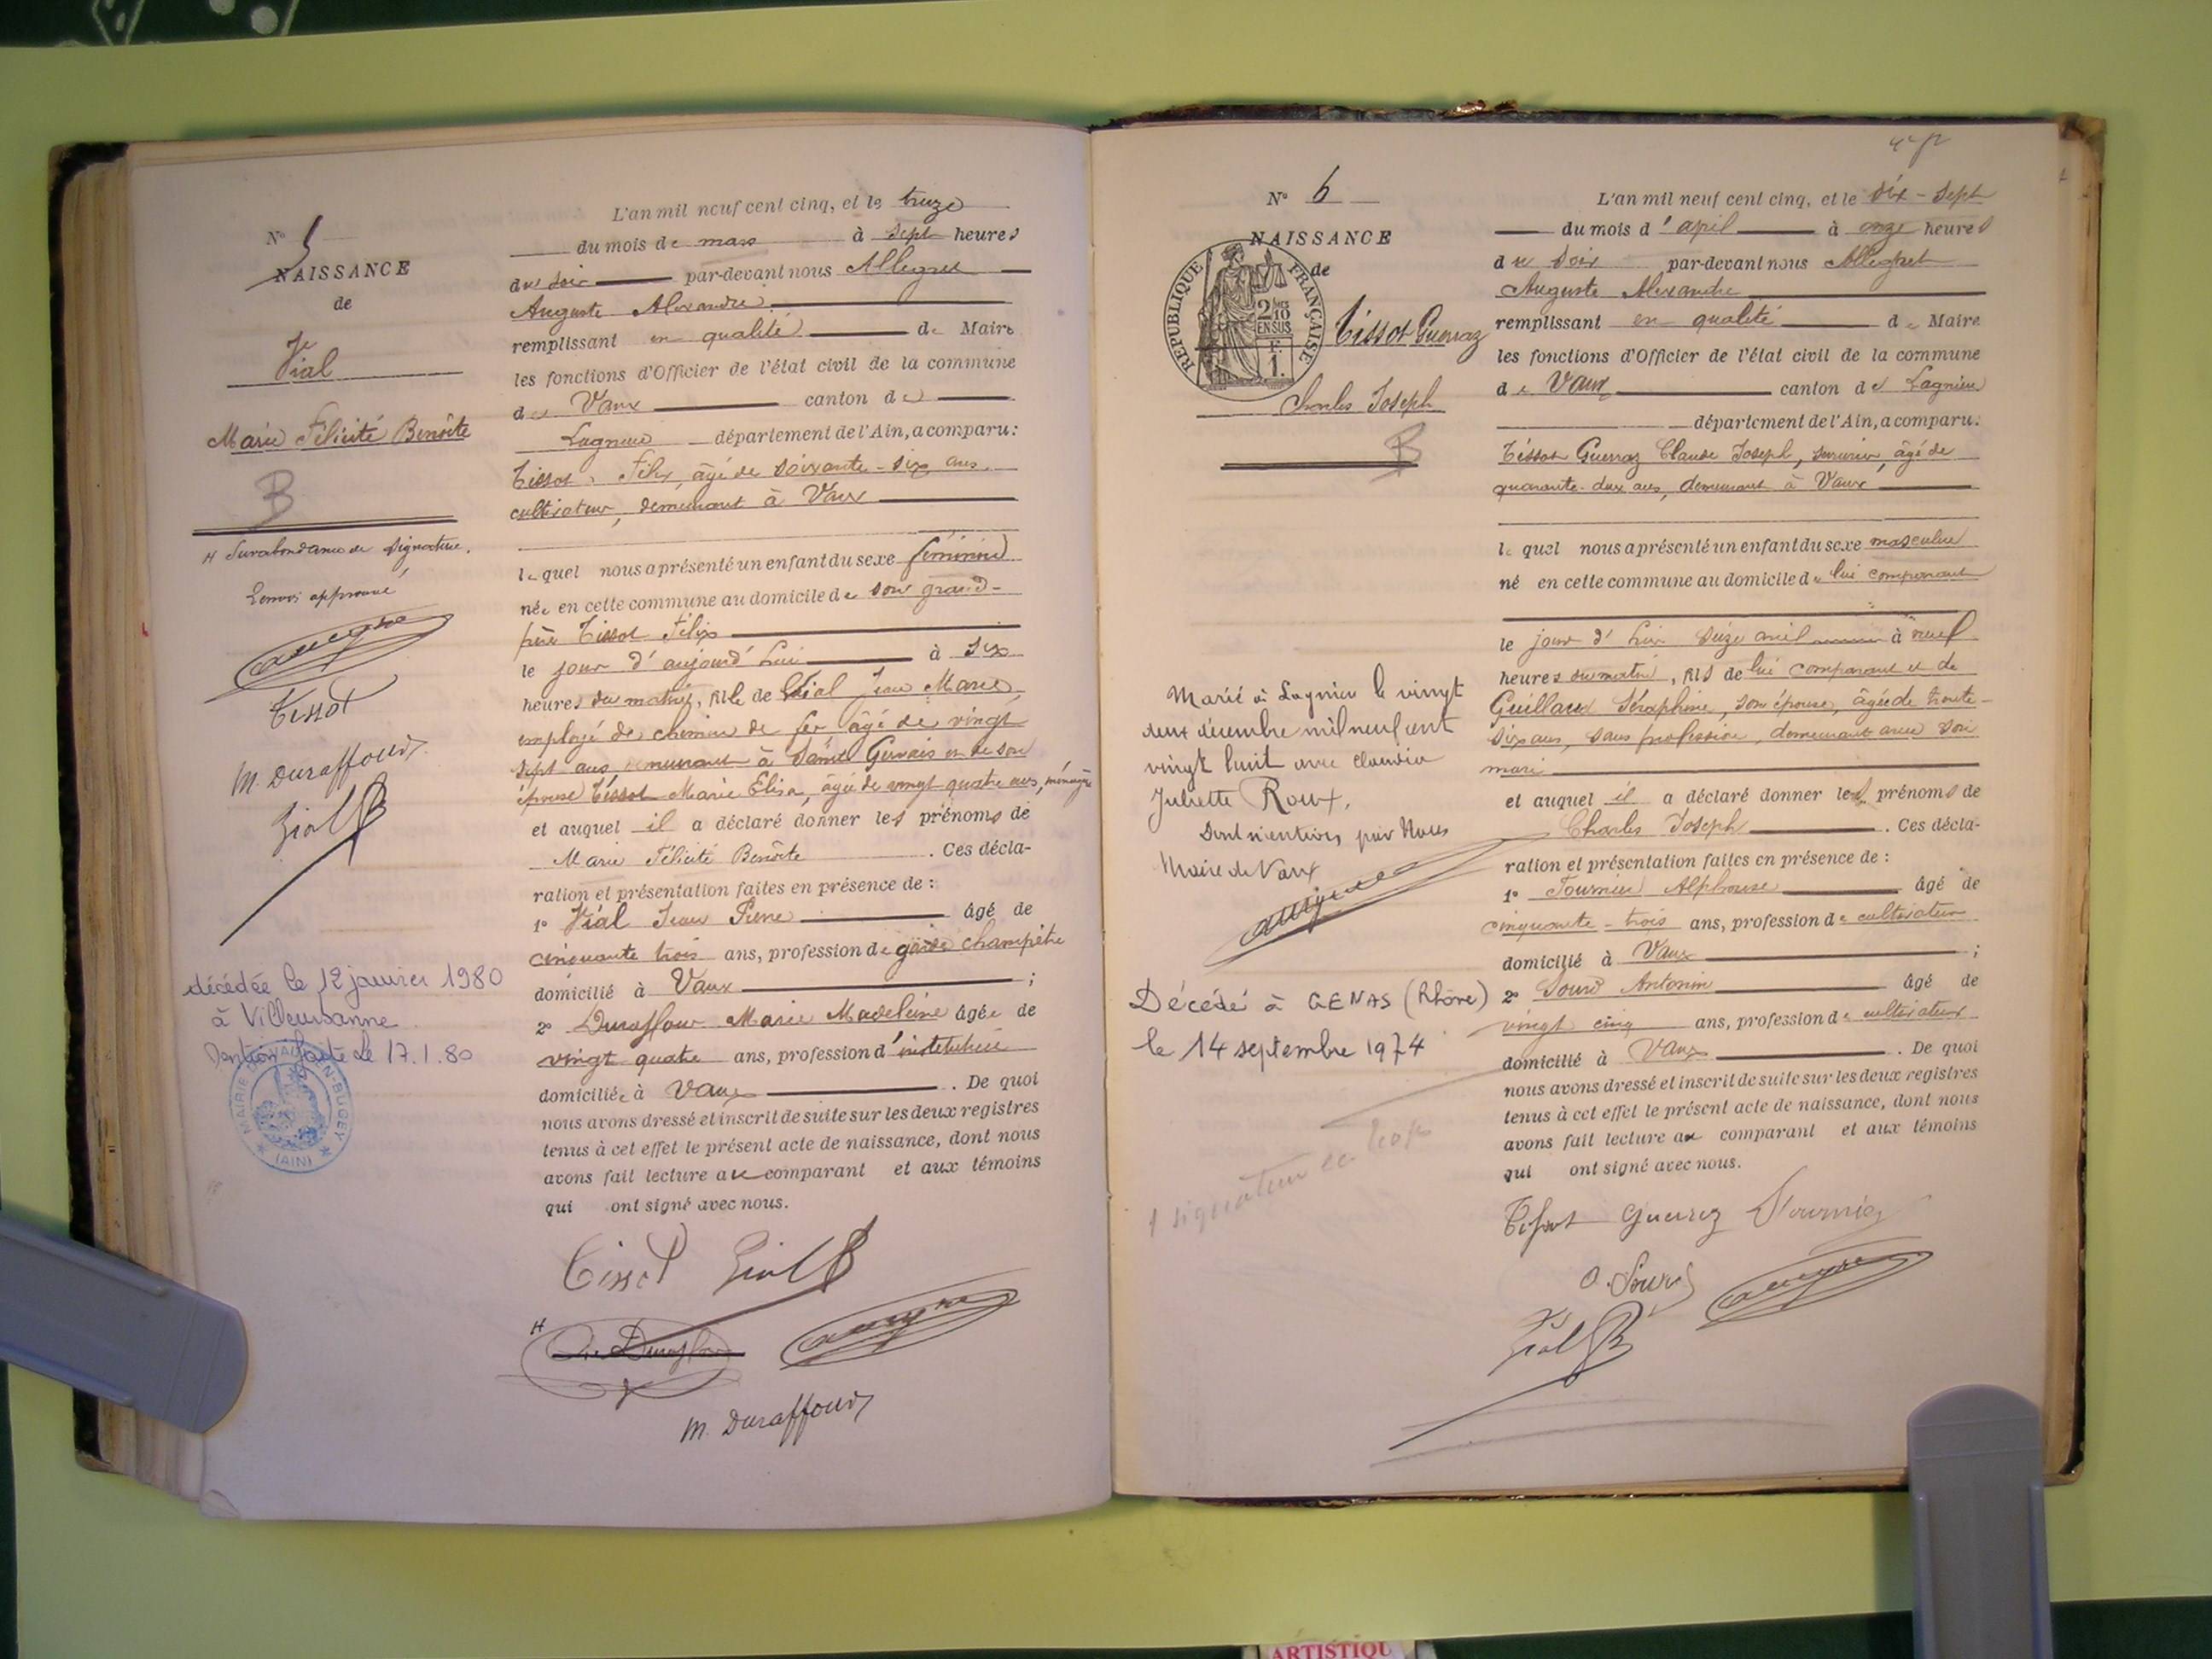 N° 5
NAISSANCE
de
Vial
Marie Félicité Benoîte
B
H Surabondance de signature.
Renvoi approuvé
Tissot
M. Duraffourd
Vial
décédée le 12 janvier 1980
à Villeurbanne
Mention faite le 17.1.80
MAIRIE DE VAUX-EN-BUGEY
(AIN)
L'an mil neuf cent cinq, et le treize
du mois de mars à sept heures
du soir par-devant nous Allegret
Auguste Alexandre
remplissant en qualité de Maire
les fonctions d'Officier de l'état civil de la commune
de Vaux canton de
Lagnieu département de l'Ain, a comparu:
Tissot Félix, âgé de soixante-six ans
cultivateur, demeurant à Vaux
lequel nous a présenté un enfant du sexe féminin
née en cette commune au domicile de son grand-
père Tissot Félix
le jour d'aujourd'hui à six
heures du matin, fille de Vial Jean Marie,
employé de chemin de fer âgé de vingt
sept ans demeurant à Saint Gervais et de son
épouse Tissot Marie Elisa, âgée de vingt quatre ans, ménagère
et auquel il a déclaré donner les prénoms de
Marie Félicité Benoîte. Ces décla-
ration et présentation faites en présence de:
1° Vial Jean Pierre âgé de
cinquante trois ans, profession de garde champêtre
domicilié à Vaux;
2° Duraffour Marie Madeleine âgée de
vingt quatre ans, profession d'institutrice
domiciliée à Vaux. De quoi
nous avons dressé et inscrit de suite sur les deux registres
tenus à cet effet le présent acte de naissance, dont nous
avons fait lecture au comparant et aux témoins
qui ont signé avec nous.
Tissot Vial
H
M. Duraffourd
N° 6
NAISSANCE
de
RÉPUBLIQUE FRANÇAISE
2/10
EN SUS
1F.
Tissot Guerraz
Charles Joseph
B
Marié à Lagnieu le vingt
deux décembre mil neuf cent
vingt huit avec Claudia
Juliette Roux.
Dont mention, par Nous
Maire de Vaux
Décédé à GENAS (Rhône)
le 14 septembre 1974
1 signature de trop
L'an mil neuf cent cinq, et le dix-sept
du mois d'april à onze heures
du soir par-devant nous Allegret
Auguste Alexandre
remplissant en qualité de Maire
les fonctions d'Officier de l'état civil de la commune
de Vaux canton de Lagnieu
département de l'Ain, a comparu:
Tissot Guerraz Claude Joseph, serrurier, âgé de
quarante-deux ans, demeurant à Vaux
lequel nous a présenté un enfant du sexe masculin
né en cette commune au domicile de lui comparant
le jour d'hier seize avril à neuf
heures du matin, fils de lui comparant et de
Guillaux Séraphine, son épouse, âgée de trente-
six ans, sans profession, demeurant avec son
mari
et auquel il a déclaré donner les prénoms de
Charles Joseph. Ces décla-
ration et présentation faites en présence de:
1° Fournier Alphonse âgé de
cinquante-trois ans, profession de cultivateur
domicilié à Vaux;
2° Sourd Antonin âgé de
vingt cinq ans, profession de cultivateur
domicilié à Vaux. De quoi
nous avons dressé et inscrit de suite sur les deux registres
tenus à cet effet le présent acte de naissance, dont nous
avons fait lecture au comparant et aux témoins
qui ont signé avec nous.
Tissot Guerraz Fournier
A. Sourd
Vial
ARTISTIQU